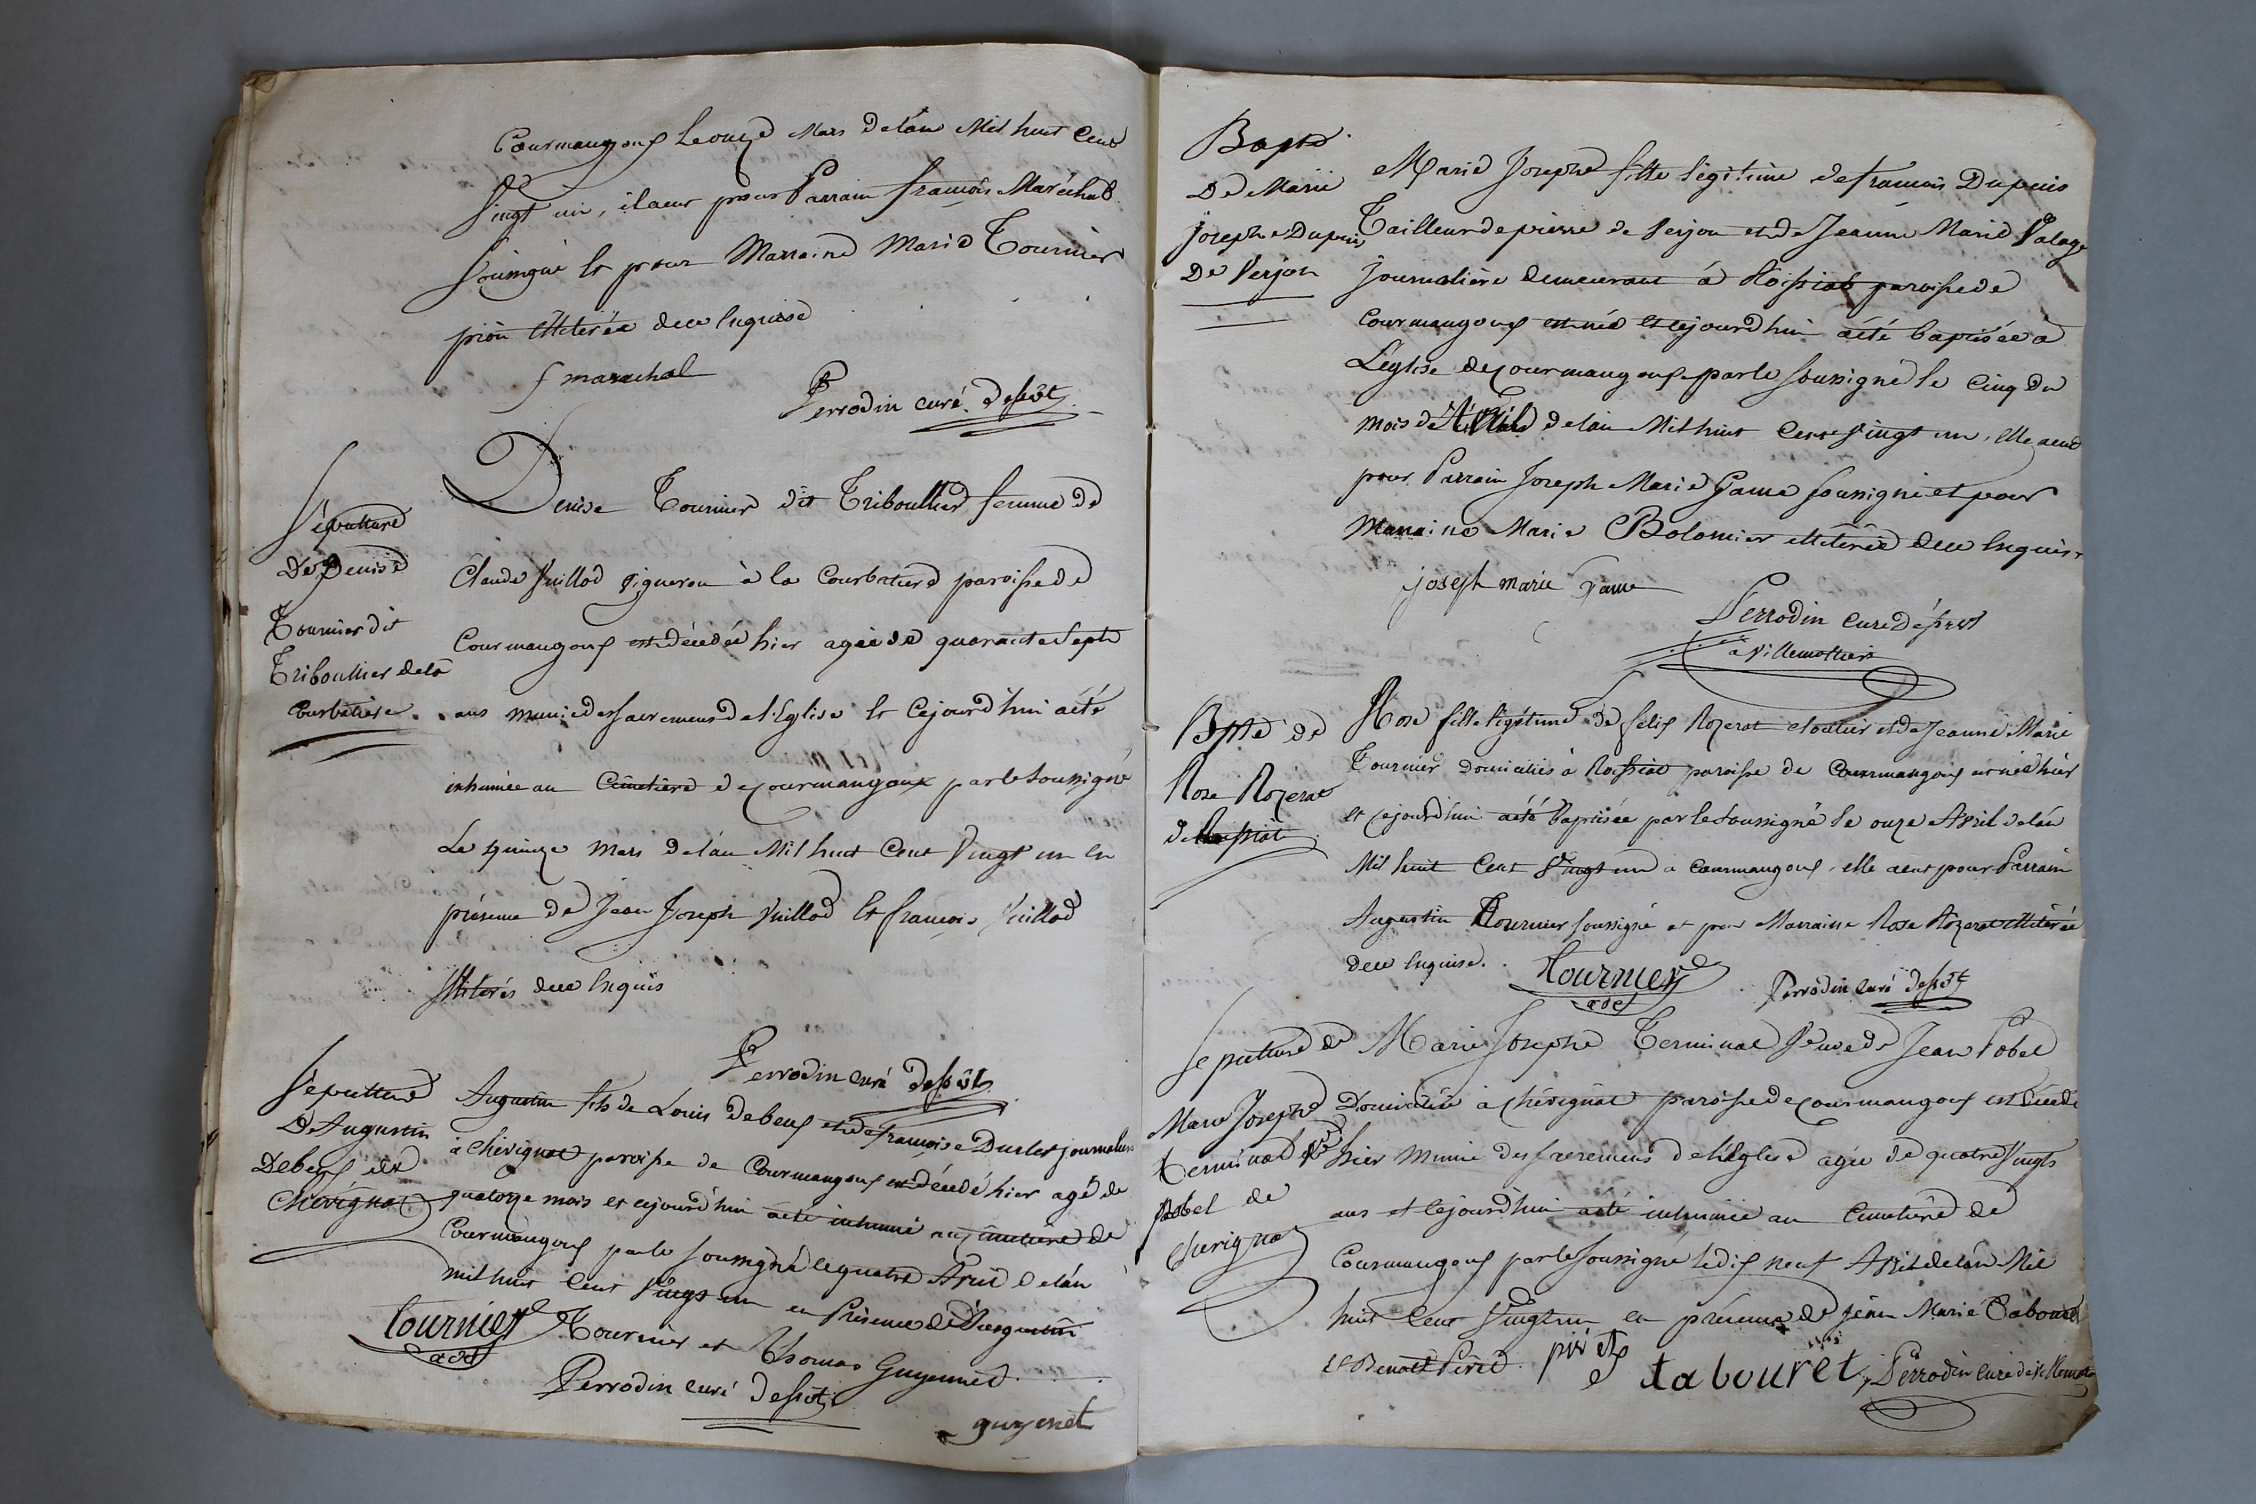 Courmangoux Le onze Mars de l'an Mil huit Cent
Vingt un, il a eu pour Parrain françois Maréchal
Soussigné Et pour Marraine Marie Tournier
illiterée de ce Enquise
f marechal
Perrodin curé desst
Sépulture
De Denise
Tournier dit
Triboullier de la
Courbatiere
Denise Tournier dit Triboullier femme de
Claude Vuillod Vigneron à la Courbatiere paroisse de
Courmangoux est décédée hier agée de quarante Sept
ans munie des sacremens de l'Eglise Et Cejourd'hui a été
inhumée au Cimetière de Courmangoux par le Soussigné
Le quinze Mars de l'an Mil huit Cent Vingt un En
présence de Jean Joseph Vuillod Et françois Vuillod
Illiterés de ce Enquis
Perrodin curé desst
Sépulture
D'Augustin
Debeuf de
Chévignat
Augustin fils de Louis Debeuf et de françoise Duclet journaliers
à Chévignat paroisse de Courmangoux est décédé hier agé de
quatorze mois et cejourd'hui a été inhumé au cimetière de
Courmangoux par le soussigné le quatre Avril de l'an
mil huit Cent Vingt un en Présence de d'Augustin
Tournier et Thomas Guyennet
Tournier
adt
Perrodin curé desst
guyenet
Bapte
De Marie
Josephe Dupuis
De Verjon
Marie Josephe fille légitime de françois Dupuis
Tailleur de pierre de Verjon et de Jeanne Marie
Journalière demeurant à Roissiat paroisse de
Courmangoux est née et cejourd'hui a été baptisée à
L'église de Courmangoux par le soussigné le Cinq du
mois d'Avril de l'an Mil huit Cent Vingt un, elle a eu
pour Parrain Joseph Marie Game soussigné et pour
Marraine Marie Bolomier illiterée de ce Enquise
joseph marie Game
Perrodin curé desst
à Villemottier
Bpte de
Rose Rozerat
de Roissiat
Rose fille légitime de félix Rozerat cloutier et de Jeanne Marie
Tournier domiciliés à Roissiat paroisse de Courmangoux est née hier
et cejourd'hui a été Baptisée par le Soussigné le onze Avril de l'an
Mil huit Cent Vingt un à Courmangoux, elle a eu pour Parrain
Augustin Tournier soussigné et pour Marraine Rose Rozerat illiterée
de ce Enquise.
Tournier
adt
Perrodin curé desst
Sepulture de
Marie Josephe
Terminal Vve
pobel de
Chevignat
Marie Josephe Terminal Veuve de Jean Pobel
Domiciliée à Chévignat paroisse de Courmangoux est décédée
hier Munie des sacremens de l'Eglise agée de quatre Vingts
ans et Cejourd'hui a été inhumée au Cimetière de
Courmangoux par le soussigné le dix neuf Avril de l'an Mil
huit Cent Vingt un en présence de jean Marie Tabouret
et Benoit Piret.
tabouret
Perrodin curé de Villemottier